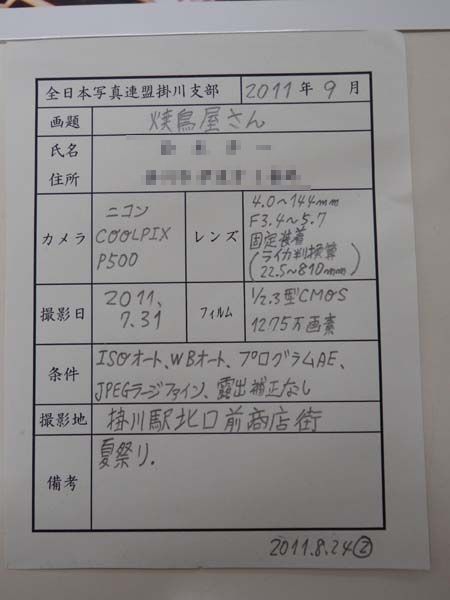 全日本写真連盟掛川支部 2011年9月
画題 焼鳥屋さん
氏名 一
住所
カメラ ニコン COOLPIX P500
レンズ 4.0～144mm
F3.4～5.7
固定装着
(ライカ判換算
22.5～810mm)
撮影日 2011.
7.31
フィルム 1/2.3型CMOS
1275万画素
条件 ISOオート、WBオート、プログラムAE、
JPEGラージファイン、露出補正なし
撮影地 掛川駅北口前商店街
備考 夏祭り.
2011.8.24②